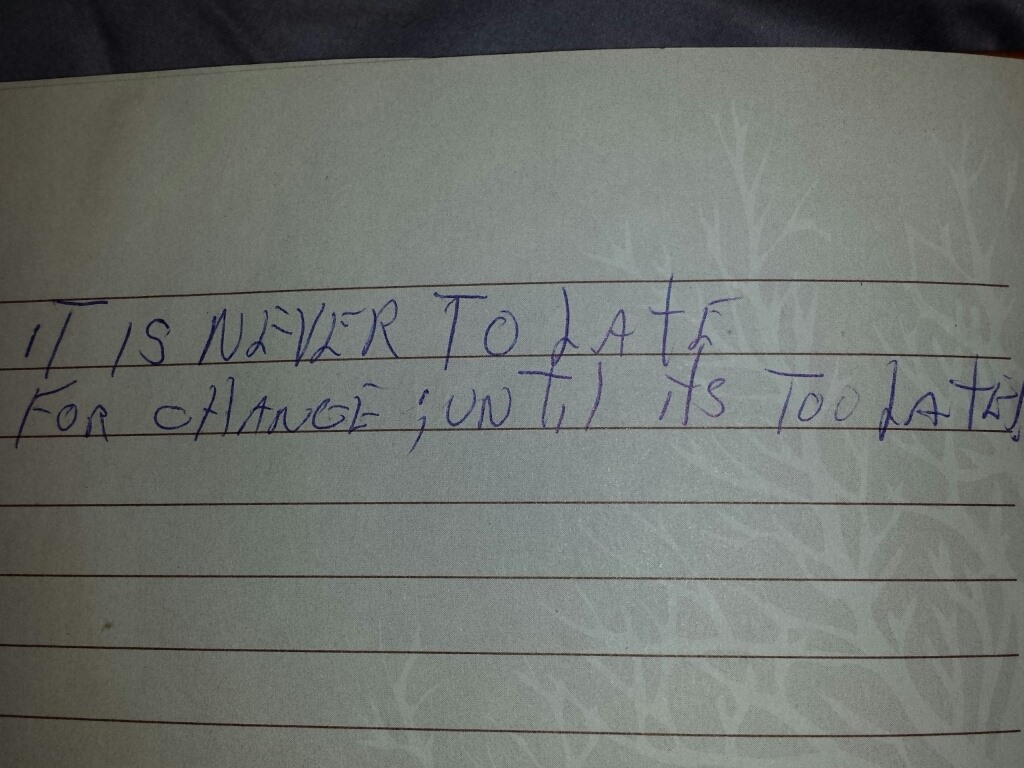 iT IS NEVER TO LAtE
FOR CHANGE ; UNTil itS TOO LAtE!